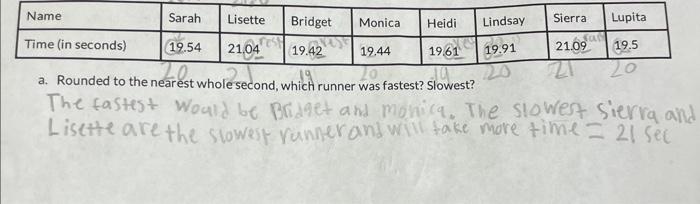 Name Sarah Lisette Bridget Monica Heidi Lindsay Sierra Lupita
Time (in seconds) 19.54 21.04 19.42 19.44 19.61 19.91 21.09 19.5
20 21 19 20 19 20 21 20
a. Rounded to the nearest whole second, which runner was fastest? Slowest?
The fastest would be Bridget and monica. The slowest Sierra and
Lisette are the slowest runner and will take more time = 21 sec